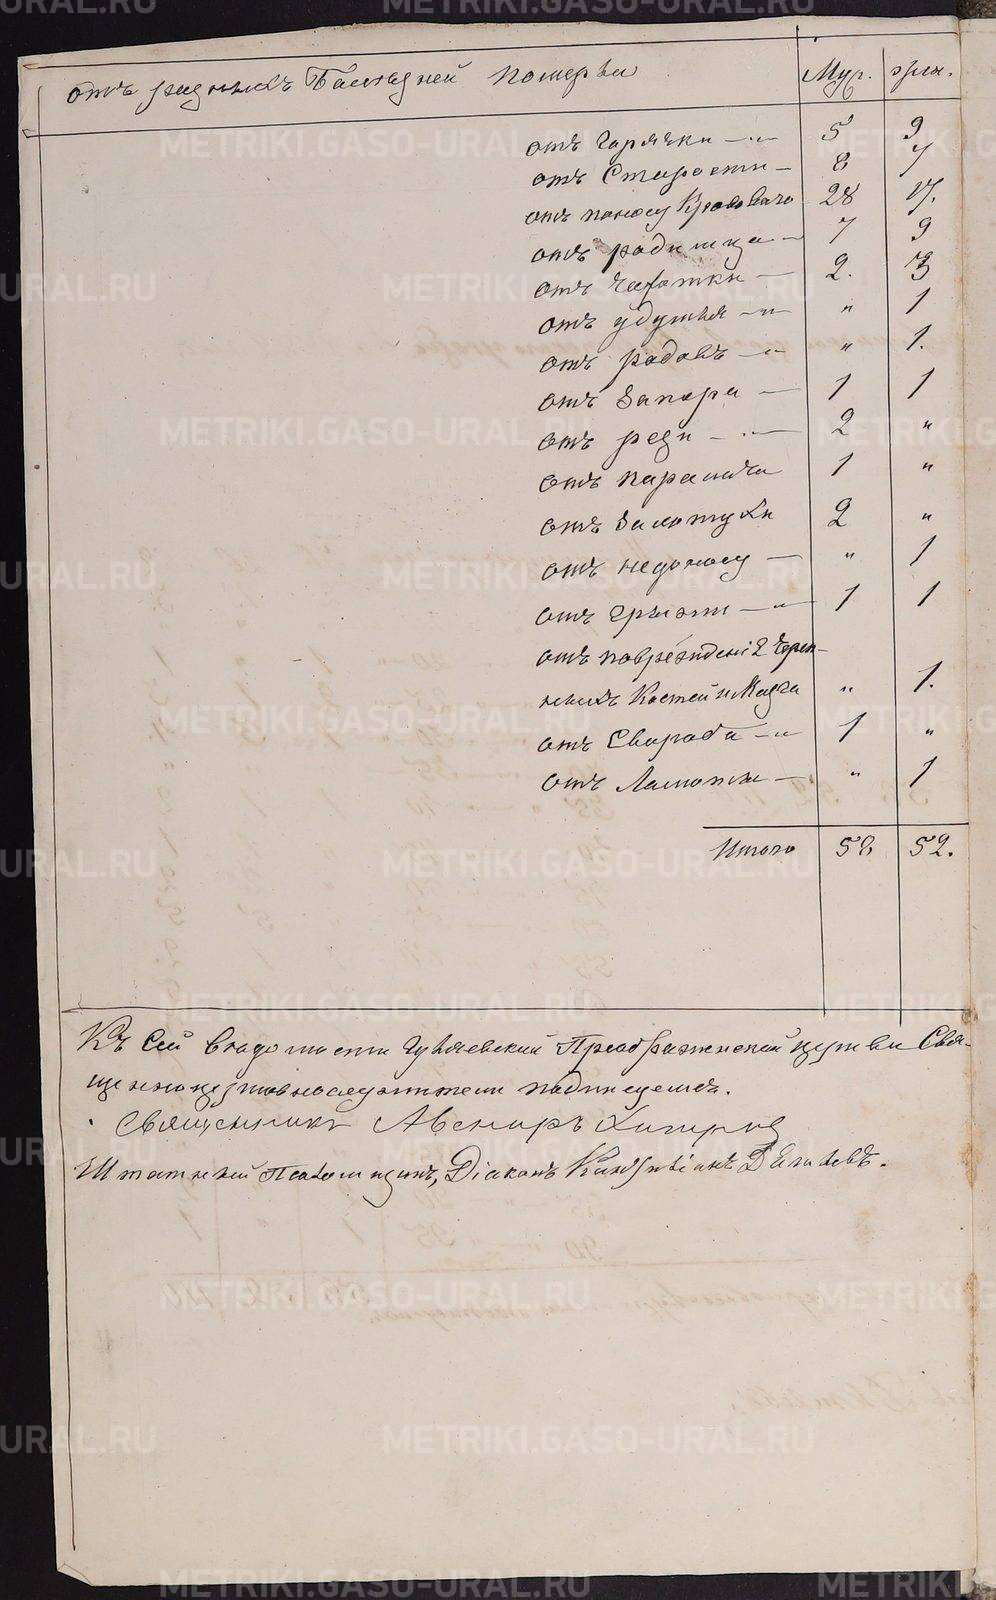 отъ разныхъ Болѣзней померли Муж. жен.
отъ Горячки — „ — 5 9
отъ Старости — 8 7
отъ поносу Кроваваго 28 17.
отъ родимца — 7 9
отъ чахотки — 2. 3
отъ удушья — „ — „ 1
отъ родовъ — „ „ 1.
отъ Запора — 1 1
отъ рези — „ — 2 „
отъ паралича 1 „
отъ Залотухи 2 „
отъ недоносу — „ 1
отъ грыжи — „ — 1 1
отъ поврежденія Череп-
ныхъ Костей и Мозга „ 1.
отъ Свороба — „ 1 „
отъ Ламоты — „ 1
Итого 58 52.
Къ Сей вѣдомости Преображенской церкви Свя-
щенноцерковнослужители подписуемся.
Священникъ Авениръ
Штатный Псаломщикъ, Діаконъ
METRIKI.GASO-URAL.RU